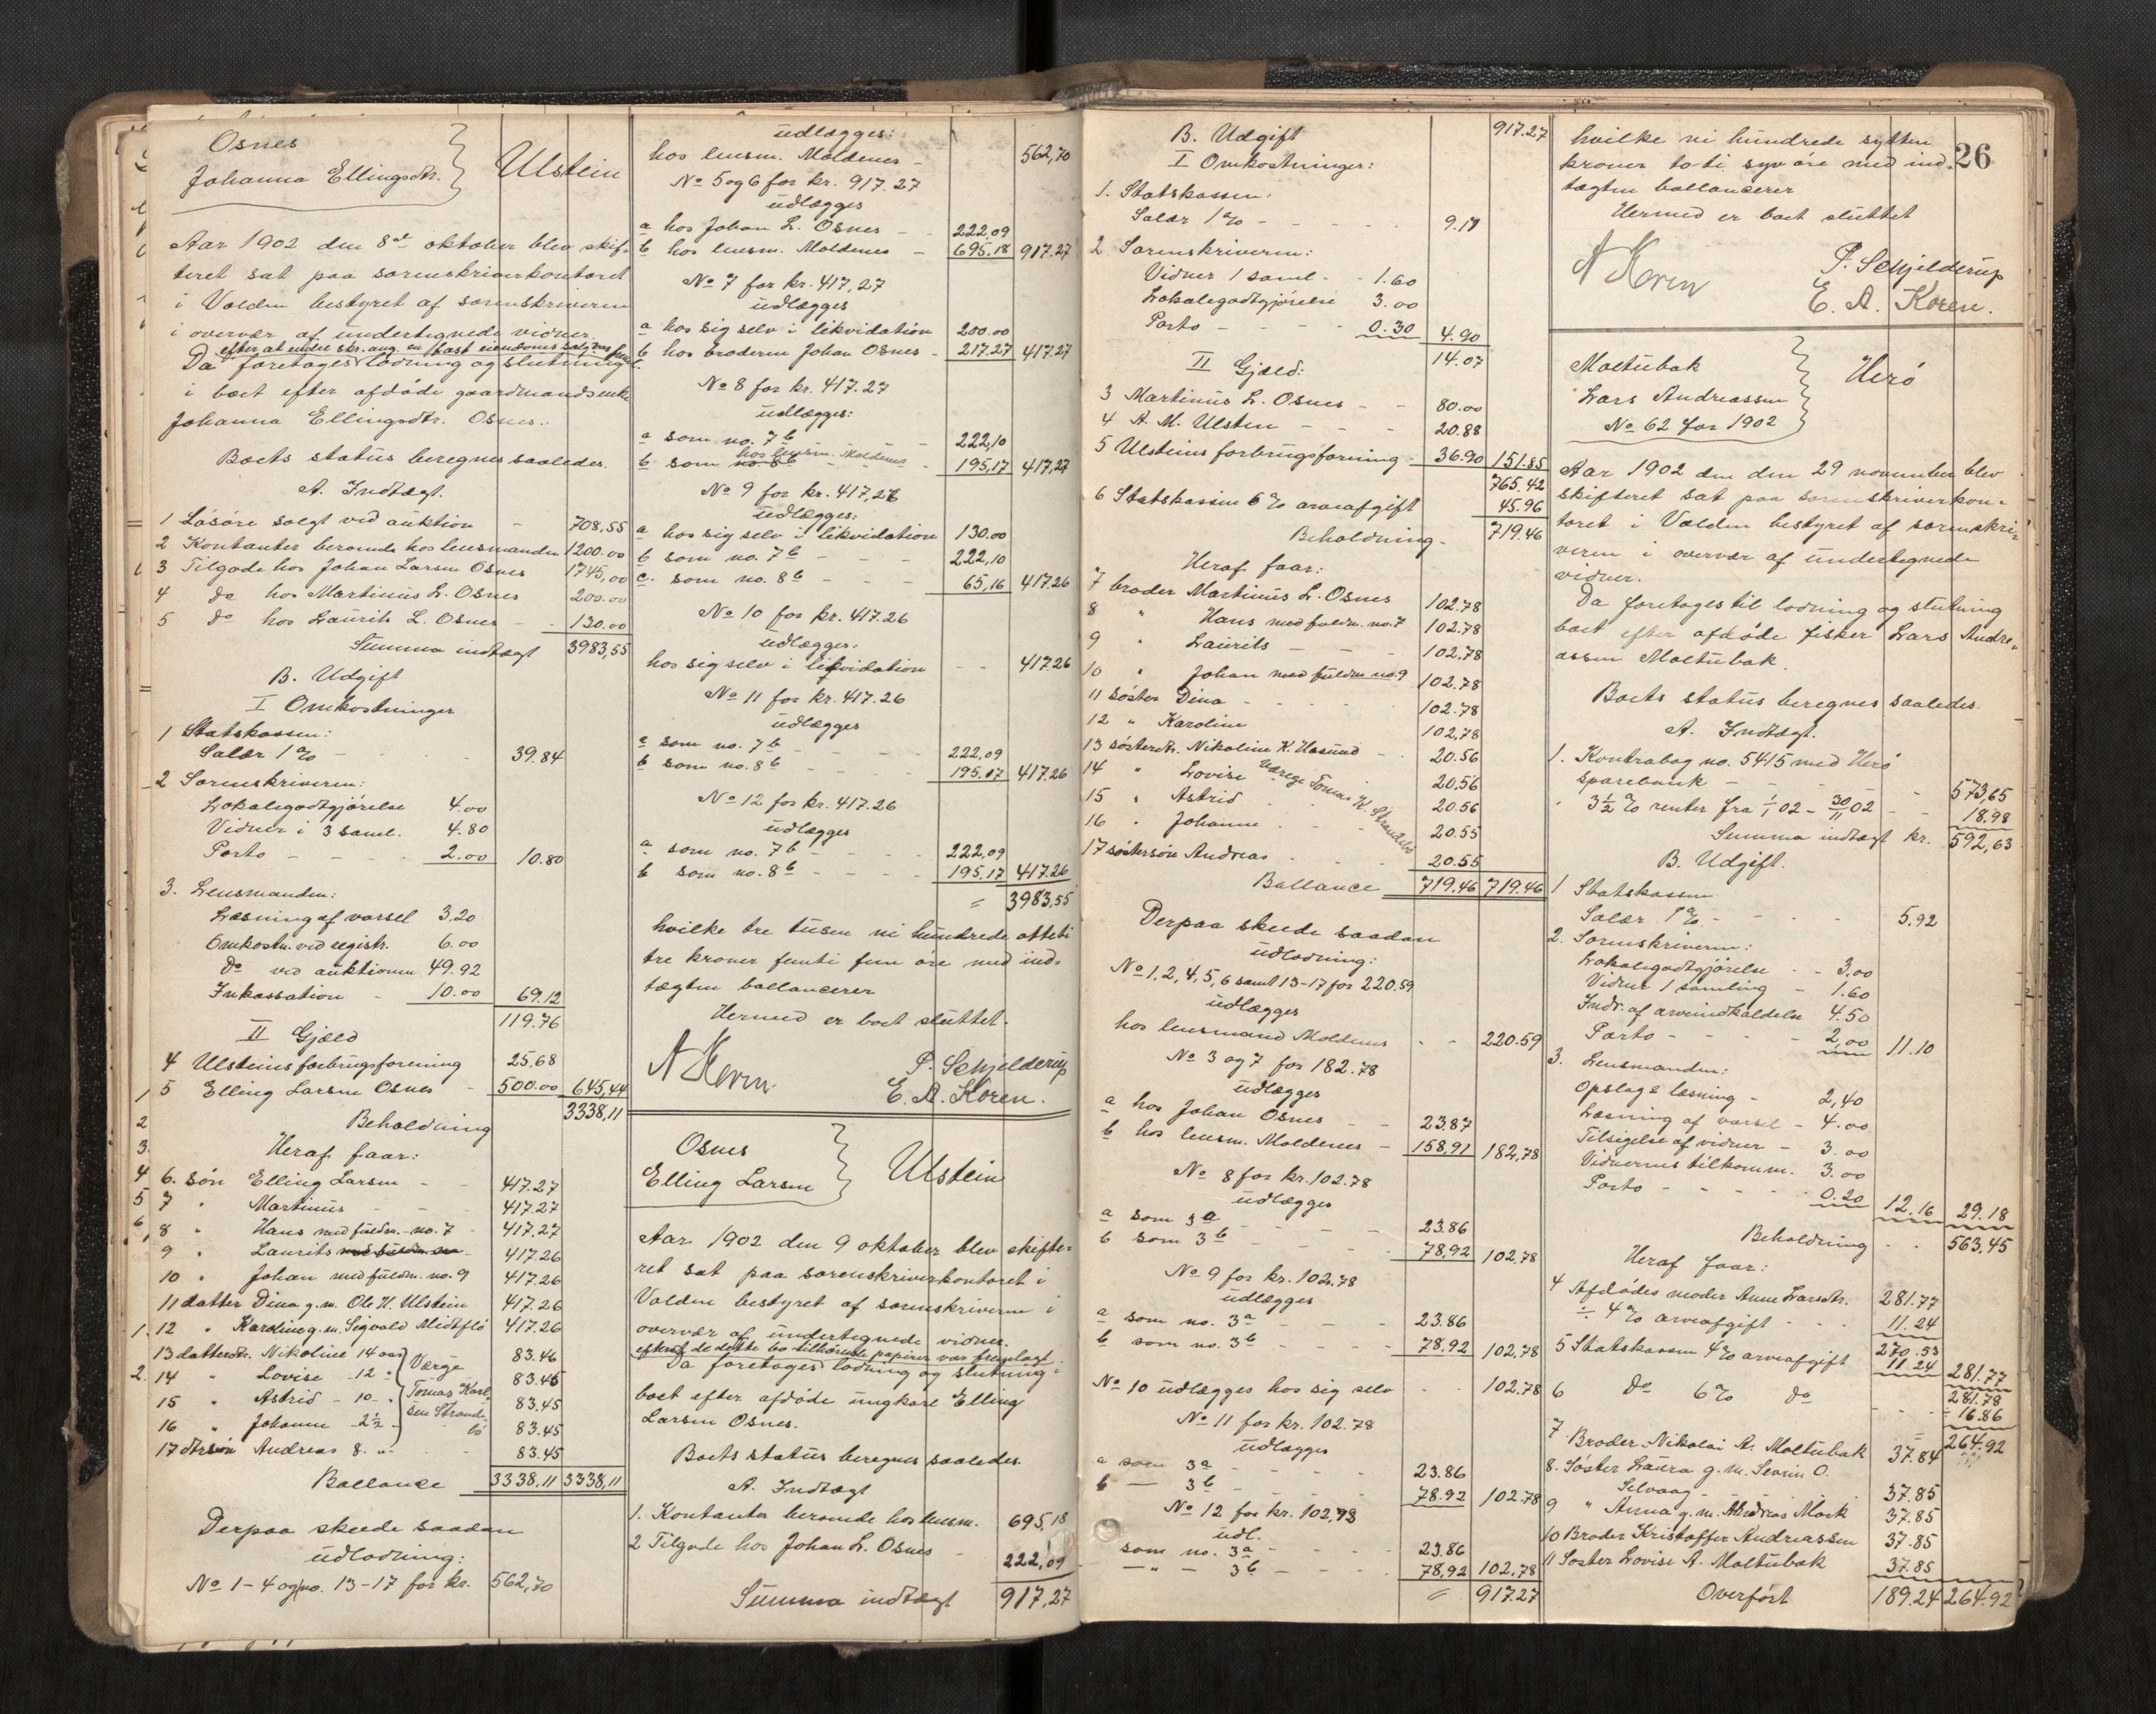 Osnes
Johanna Ellingsdtr. } Ulstein
Aar 1902 den 8de oktober blev skif-
teret sat paa sorenskriverkontoret
i Volden bestyret af sorenskriveren
i overvær af undertegnede vidner.
efter at endel skr. ang. en fast eiendoms salg var freml.
Da foretages lodning og slutning
i boet efter afdöde gaardmandsenke
Johanna Ellingsdtr. Osnes.
Boets status beregnes saaledes.
A. Indtægt.
1 Lösöre solgt ved auktion - 708,55
2 Kontanter beroende hos lensmanden 1200.00
3 Tilgode hos Johan Larsen Osnes 1745,00
4 do hos Martinus L. Osnes 200.00
5 do hos Laurits L. Osnes - - 130.00
Summa indtægt 3983,55
B. Udgift
I Omkostninger
1 Statskassen:
Salær 1 % - - 39.84
2 Sorenskriveren:
Lokalegodtgjörelse 4.00
Vidner i 3 saml. 4.80
Porto - - - 2.00 10.80
3. Lensmanden:
Læsning af varsel 3.20
Omkostn. ved registr. 6.00
do ved auktionen 49.92
Inkassation - 10.00 69.12
119.76
II Gjæld
4 Ulsteins forbrugsforening 25.68
5 Elling Larsen Osnes - 500.00 645,44
Beholdning 3338,11
Heraf faar:
6. sön Elling Larsen - - 417.27
7 " Martinus - - 417.27
8 " Hans med fuldm. no. 7 - 417.27
9 " Laurits 417.26
10 " Johan med fuldm. no. 9 417.26
11 datter Dina g.m. Ole H. Ulstein 417.26
12 " Karoline g.m. Sigvald Midtflö 417.26
13 datterdtr. Nikoline 14 aar } Værge 83.46
14 " Lovise 12 " 83.45
15 " Astrid - 10 - " Tomas Karl- 83.45
16 " Johanne - 2½ - sen Strandebö 83.45
17 dtrsön Andreas 8. " - - 83.45
Ballance 3338,11 3338,11
Derpaa skeede saadan
udlodning:
No 1-4 og no. 13-17 for kr. 562,70
udlægges:
hos lensm. Moldenes - 562,70
No 5 og 6 for kr. 917.27
udlægges
a hos Johan L. Osnes - - 222,09
b hos lensm. Moldenes - 695,18 917.27
No 7 for kr. 417,27
udlægges
a hos sig selv i likvidation 200.00
b hos broderen Johan Osnes - 217.27 417.27
No 8 for kr. 417.27
udlægges:
a som no. 7 b - - - 222,10
b hos lensm. Moldenes - 195,17 417,27
No 9 for kr. 417,26
udlægges:
a hos sig selv i likvidation 130.00
b som no. 7 b - - - 222,10
c. som no. 8 b - - - 65,16 417.26
No 10 for kr. 417.26
udlægges:
hos sig selv i likvidation - - 417.26
No 11 for kr. 417.26
udlægges
a som no. 7 b - - - 222,09
b som no. 8 b - - - 195.17 417.26
No 12 for kr. 417.26
udlægges
a som no. 7 b - - - 222,09
b som no. 8 b - - - 195,17 417.26
" 3983,55
hvilke tre tusen ni hundrede otteti
tre kroner femti fem öre med ind-
tægten ballancerer
Hermed er boet sluttet.
A Koren P. Schjelderup
E. A. Koren.
Osnes
Elling Larsen } Ulstein
Aar 1902 den 9 oktober blev skifte-
ret sat paa sorenskriverkontoret i
Volden bestyret af sorenskriveren i
overvær af undertegnede vidner.
efterat de dette bo tilhörende papirer var fremlagt
Da foretages lodning og slutning i
boet efter afdöde ungkare Elling
Larsen Osnes.
Boets status beregnes saaledes.
A. Indtægt
1. Kontanter beroende hos lensm. 695,18
2 Tilgode hos Johan L. Osnes - 222,09
Summa indtægt 917,27
B. Udgift 917.27
I Omkostninger:
1. Statskassen:
Salær 1 % - - - - 9.17
2 Sorenskriveren:
Vidner 1 saml. - - 1.60
Lokalegodtgjörelse 3.00
Porto - - - - 0.30 4.90
14.07
II Gjæld:
3 Martinus L. Osnes - - 80.00
4 A. M. Ulsten - - - 20.88
5 Ulsteins forbrugsforening - 36.90 151.85
765.42
6 Statskassen 6 % arveafgift 45.96
Beholdning - 719.46
Heraf faar:
7 broder Martinus L. Osnes 102.78
8 " Hans med fuldm. no. 7 102.78
9 " Laurits - - - 102.78
10 " Johan med fuldm no. 9 102.78
11 söster Dina - - - - 102.78
12 " Karoline 102,78
13 sösterdtr. Nikoline K. Hasund - 20.56
14 " Lovise Værge Tomas K. Strandebö 20,56
15 " Astrid - - - 20.56
16 " Johanne - - - 20.55
17 söstersön Andreas - - - 20.55
Ballance 719.46 719.46
Derpaa skeede saadan
udlodning:
No 1, 2, 4, 5, 6 samt 13-17 for 220.59
udlægges
hos lensmand Moldenes - - 220.59
No 3 og 7 for 182.78
udlægges
a hos Johan Osnes - - 23.87
b hos lensm. Moldenes - 158,91 182,78
No 8 for kr. 102.78
udlægges
a som 3 a - - - 23.86
b som 3 b - - - 78,92 102,78
No 9 for kr. 102.78
udlægges
a som no. 3 a - - - 23.86
b som no. 3 b - - - 78.92 102,78
No 10 udlægges hos sig selv - - 102.78
No 11 for kr. 102.78
udlægges
a som 3 a - - - - 23.86
b — 3 b - - - - 78.92 102.78
No 12 for kr. 102,78
udl.
som no. 3 a - - - - 23.86
—"— 3 b - - - - 78,92 102,78
" 917.27
26
hvilke ni hundrede sytten
kroner toti syv öre med ind-
tægten ballancerer
Hermed er boet sluttet
A Koren P. Schjelderup
E. A. Koren.
Moltubak
Lars Andreassen } Herö
No 62 for 1902
Aar 1902 den den 29 november blev
skifteret sat paa sorenskriverkon-
toret i Volden bestyret af sorenskri-
veren i overvær af undertegnede
vidner.
Da foretages til lodning og slutning
boet efter afdöde fisker Lars Andre-
assen Moltubak.
Boets status beregnes saaledes.
A. Indtægt.
1. Kontrabog no. 5415 med Herö
sparebank - - - - 573,65
" 3½ % renter fra 1/1 02 - 30/11 02 - - 18.98
Summa indtægt kr. 592,63
B. Udgift.
1 Statskassen
Salær 1 % - - - - 5.92
2. Sorenskriveren:
Lokalegodtgjörelse - - 3,00
Vidner 1 samling - 1.60
Indr. af arveindkaldelse 4.50
Porto - - - - 2,00 11.10
3. Lensmanden:
Opslag & læsning - 2,40
Læsning af varsel - 4.00
Tilsigelse af vidner - 3.00
Vidnernes tilkomm. 3.00
Porto - - - - 0.20 12.16 29.18
Beholdning - - 563,45
Heraf faar:
4 Afdödes moder Anne Larsdtr. 281.77
÷ 4 % arveafgift - - - 11.24
270.53
5 Statskassen 4 % arveafgift 11.24 281.77
281.78
6 do 6 % do - - - ÷ 16.86
264.92
7. Broder Nikolai A. Moltubak 37.84
8. Söster Laura g.m. Severin O.
Selvaag - - - 37.85
9 " Anna g.m. Andreas Mork 37.85
10 Broder Kristoffer Andreassen 37.85
11 Söster Lovise A. Moltubak 37.85
Overfört 189.24 264.92